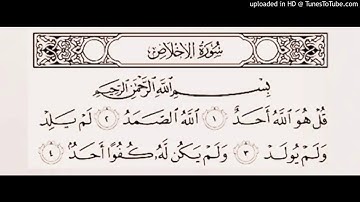 uploaded in HD @ TunesToTube.com
سُورَةُ الإِخْلَاصِ
بِسْمِ اللَّهِ الرَّحْمَٰنِ الرَّحِيمِ
قُلْ هُوَ اللَّهُ أَحَدٌ ١ اللَّهُ الصَّمَدُ ٢ لَمْ يَلِدْ
وَلَمْ يُولَدْ ٣ وَلَمْ يَكُن لَّهُ كُفُوًا أَحَدٌ ٤